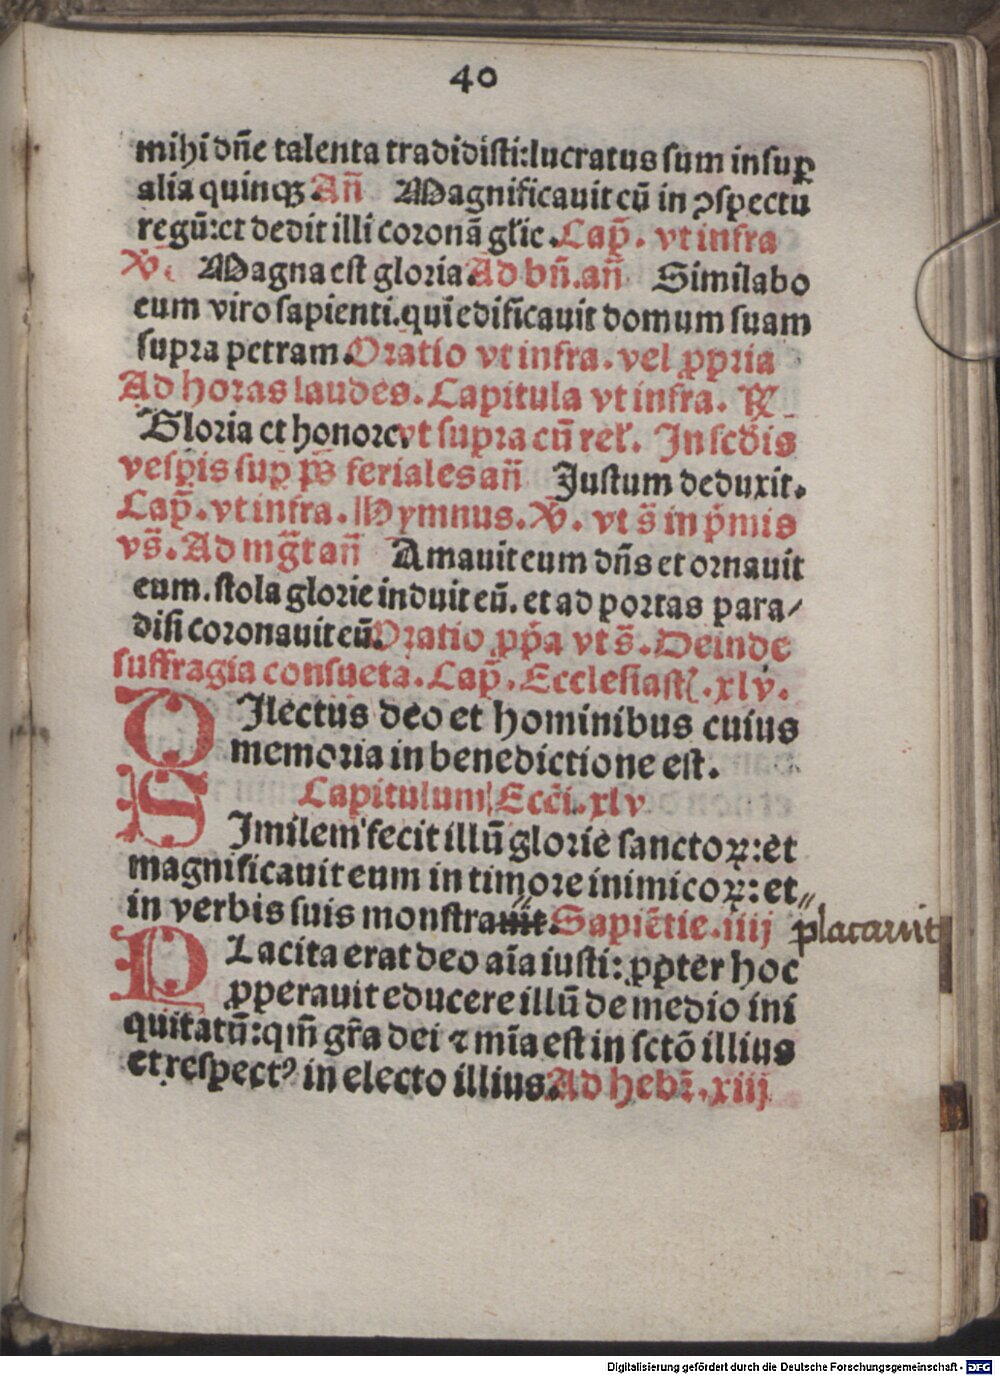 40
mihi dñe talenta tradidisti:lucratus sum insuꝑ
alia quinqꝫ Añ Magnificauit eū in ꝯspectu
regū:et dedit illi coronā gl'ie. Cap̄. vt infra
℣. Magna est gloria. Ad bñ.añ Similabo
eum viro sapienti.qui edificauit domum suam
supra petram. Oratio vt infra. vel ꝓpria
Ad horas laudes. Capitula vt infra. ℟
Gloria et honore. vt supra cū rel'. In scd'is
vesꝑis suꝑ ps̄ feriales añ Justum deduxit.
Cap̄. vt infra. Hymnus. ℣. vt s̄ in p̄mis
vs̄. Ad mg̃t añ Amauit eum dñs et ornauit
eum. stola glorie induit eū. et ad portas para/
disi coronauit eū. Oratio ꝓp̄a vt s̄. Deinde
suffragia consueta. Cap̄. Ecclesiastꝭ. xlv.
DIlectus deo et hominibus cuius
memoria in benedictione est.
Capitulum Ecci. xlv
SImilem fecit illū glorie sanctoꝝ: et
magnificauit eum in timore inimicoꝝ: et
in verbis suis monstrauit. Sapiẽtie. iiij placauit
PLacita erat deo aīa iusti: ꝓpter hoc
ꝓperauit educere illū de medio ini
quitatū: qm̄ gr̄a dei ⁊ mīa est in sctō illius
et respectꝰ in electo illius. Ad hebr̄. xiij
Digitalisierung gefördert durch die Deutsche Forschungsgemeinschaft - DFG